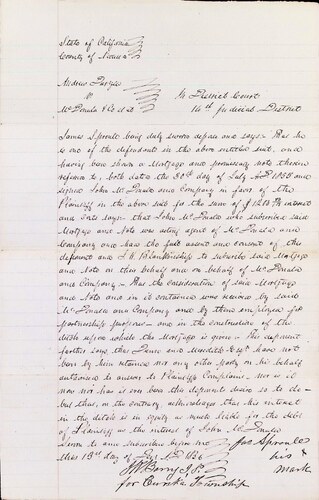 State of California
County of Nevada
Andrew Parger
v
McDonald & Co et al
In District Court
14th Judicial District
James Sproule being duly sworn deposes and says That he
is one of the defendants in the above entitled suit, and
having been shown a Mortgage and promissory note therein
referred to both dated the 30th day of July A.D. 1855 and
signed John McDonald and Company in favor of the
Plaintiff in the above suit for the sum of $ interest
and costs says that John McDonald who subscribed said
Mortgage and Note was acting agent of McDonald and
Company and had the full assent and consent of this
deponent and J. B. Blankenship to subscribe said Mortgage
and Note in their behalf and on behalf of McDonald
and Company - That the consideration of said Mortgage
and Note and in it contained was received by said
McDonald and Company and by them employed for
partnership purposes - and in the construction of the
ditch upon which the Mortgage is given - The deponent
further says that and Meredith Esqs have not
been by him retained nor any other party on his behalf
authorized to answer to Plaintiffs Complaint - nor is it
now nor has it ever been this deponents desire so to do -
but that, on the contrary acknowledges that his interest
in the ditch is in equity as much liable for the debt
of Plaintiff as the interest of John McDonald
Sworn to and subscribed before me
this 19th day of 1856
J W Barry J.P.
for Eureka Township
Jas Sproule
his x
mark